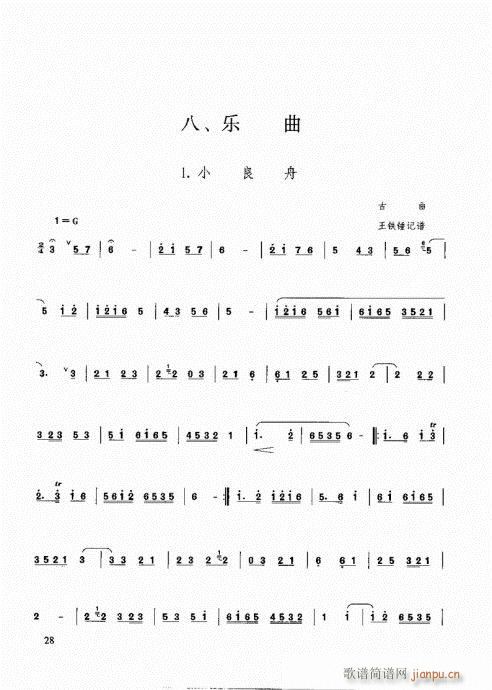 八、乐 曲
1. 小 良 舟
古 曲
1=G
王铁锤记谱
2/4 3 ∨ 5 7 | 6 - | 2 1 5 5 | 6 - | 2 1 7 6 | 5 4 3 | 5 6 5
5 1 2 | 1 2 1 6 5 | 4 3 5 6 | 5 - | 1 2 1 6 5 6 1 | 6 1 6 5 3 5 2 1
3. ∨ 3 | 2 1 2 3 | 2 2 0 3 | 2 1 6 | 6 1 2 5 | 3 2 1 2 | 2 2 2
3 2 3 5 3 | 5 1 6 1 6 5 | 4 5 3 2 1 | 1. 2 | 6 5 3 5 6 - 1. 6 1 3 tr
tr
2. 3 1 6 | 5 6 1 2 6 5 3 5 | 6 - 1. 2 1 2 1 6 | 5. 6 1 | 6 1 5 6 5
3 5 2 1 3 | 3 3 2 1 | 2 3 2 2 | 0 3 2 1 | 6 6 1 | 2 2 2
2 - | 2 2 3 2 1 2 | 5 3 5 6 5 | 6 5 3 2 3 5 | 1 1 | 1 6 5 3 5
28
歌谱简谱网
jianpu.cn